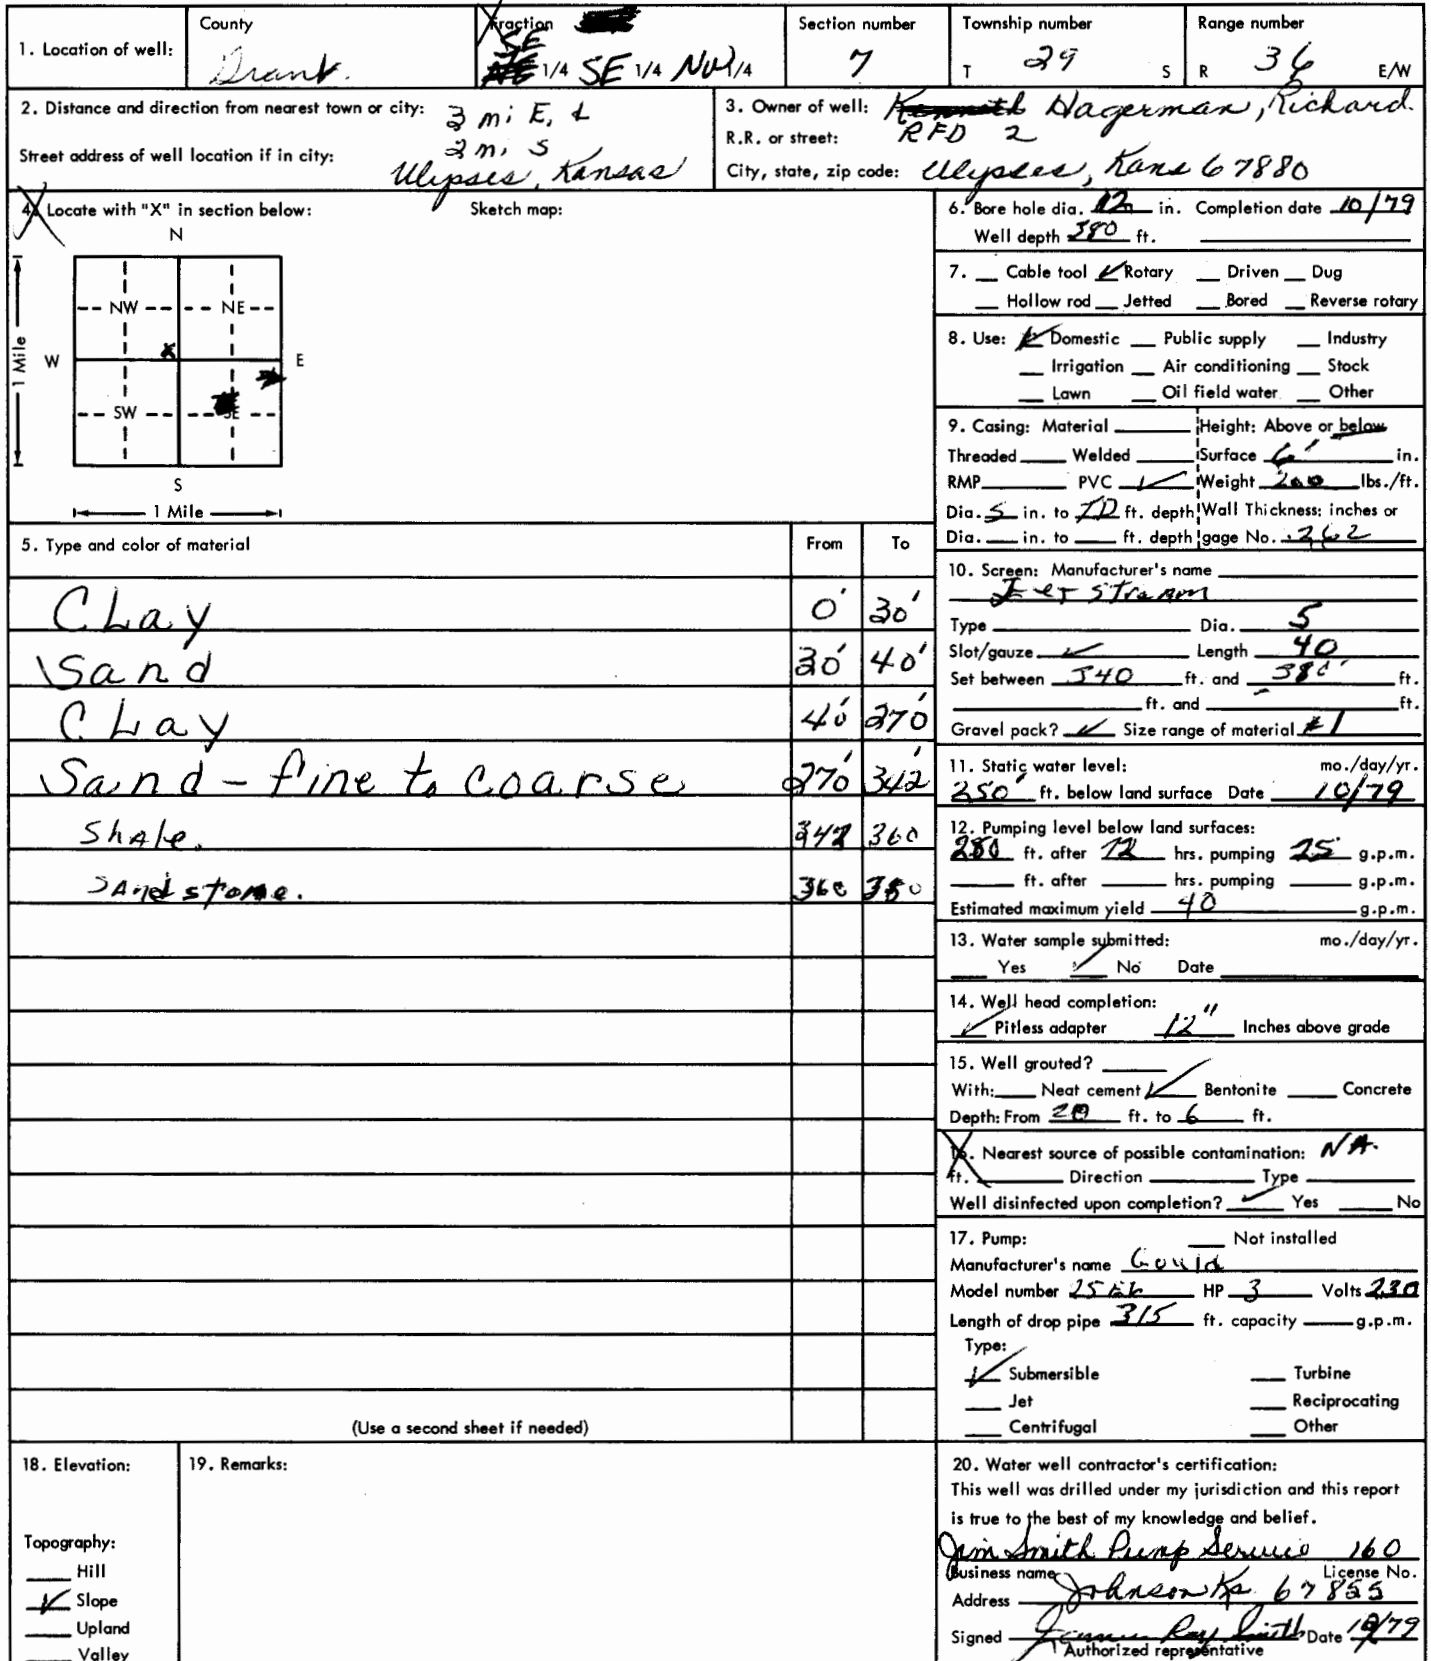 1. Location of well: County Grant. Fraction SE 1/4 SE 1/4 NW 1/4 Section number 7 Township number T 29 S Range number R 36 E/W
2. Distance and direction from nearest town or city: 3 mi E, &
2 mi S
Street address of well location if in city: Ulysses, Kansas
3. Owner of well: Kenneth Hagerman, Richard.
R.R. or street: RFD 2
City, state, zip code: Ulysses, Kans 67880
4. Locate with "X" in section below: Sketch map:
N
NW NE
W X E
SW SE
S
1 Mile
1 Mile
5. Type and color of material From To
CLay 0' 30'
Sand 30' 40'
CLay 40' 270'
Sand - fine to coarse 270' 342'
Shale. 342 360
Sandstone. 360 380
(Use a second sheet if needed)
6. Bore hole dia. 12 in. Completion date 10/79
Well depth 380 ft.
7. Cable tool ✓ Rotary Driven Dug
Hollow rod Jetted Bored Reverse rotary
8. Use: ✓ Domestic Public supply Industry
Irrigation Air conditioning Stock
Lawn Oil field water Other
9. Casing: Material Height: Above or below
Threaded Welded Surface 6' in.
RMP PVC ✓ Weight 200 lbs./ft.
Dia. 5 in. to TD ft. depth Wall Thickness: inches or
Dia. in. to ft. depth gage No. .262
10. Screen: Manufacturer's name
Type Dia. 5
Slot/gauze ✓ Length 40
Set between 340 ft. and 380' ft.
ft. and ft.
Gravel pack? ✓ Size range of material #1
11. Static water level: mo./day/yr.
250' ft. below land surface Date 10/79
12. Pumping level below land surfaces:
280 ft. after 12 hrs. pumping 25 g.p.m.
ft. after hrs. pumping g.p.m.
Estimated maximum yield 40 g.p.m.
13. Water sample submitted: mo./day/yr.
Yes ✓ No Date
14. Well head completion:
✓ Pitless adapter 12" Inches above grade
15. Well grouted?
With: Neat cement ✓ Bentonite Concrete
Depth: From 20 ft. to 6 ft.
16. Nearest source of possible contamination: NA.
ft. Direction Type
Well disinfected upon completion? ✓ Yes No
17. Pump: Not installed
Manufacturer's name Gould
Model number HP 3 Volts 230
Length of drop pipe 315 ft. capacity g.p.m.
Type:
✓ Submersible Turbine
Jet Reciprocating
Centrifugal Other
18. Elevation:
Topography:
Hill
✓ Slope
Upland
Valley
19. Remarks:
20. Water well contractor's certification:
This well was drilled under my jurisdiction and this report
is true to the best of my knowledge and belief.
Jim Smith Pump Service 160
Business name License No.
Address Johnson Ks. 67855
Signed Ray Smith Date 10/79
Authorized representative